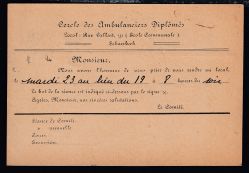 Cercle des Ambulanciers Diplômés
Local: Rue Gallait, 131 (Ecole Communale)
Schaerbeek
M
Monsieur,
Nous avons l'honneur de vous prier de vous rendre au local,
le mardi 23 au lieu du 19 à 8 heures du soir
Le but de la séance est indiqué ci-dessous par le signe ×.
Agréez, Monsieur, nos sincères salutations.
Le Comité.
Séance de Comité.
» mensuelle
Cours.
Excursion.